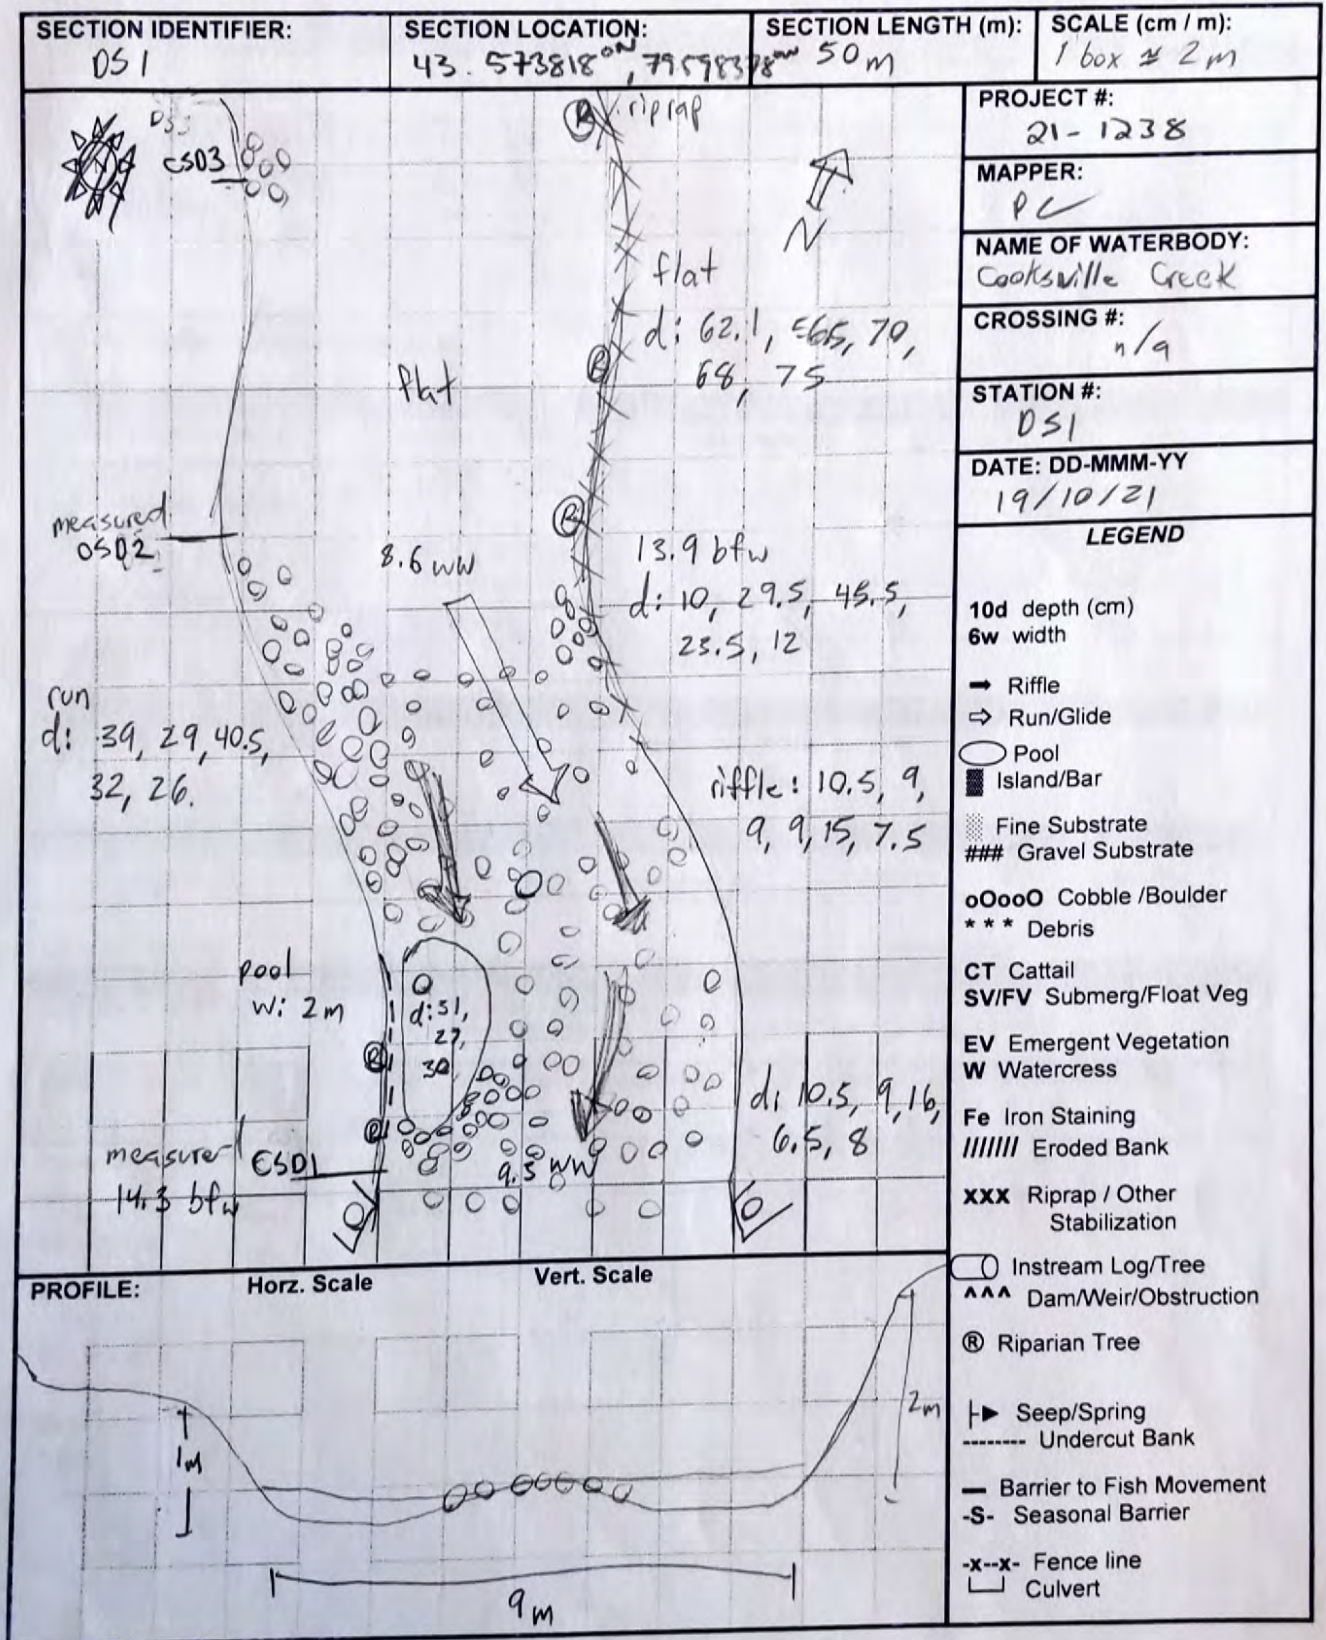 SECTION IDENTIFIER:
DS1
SECTION LOCATION:
43.573818°N, 79.598378°W
SECTION LENGTH (m):
50m
SCALE (cm / m):
1 box ≈ 2m
PROJECT #:
21-1238
MAPPER:
PC
NAME OF WATERBODY:
Cooksville Creek
CROSSING #:
n/a
STATION #:
DS1
DATE: DD-MMM-YY
19/10/21
CSD3
R riprap
N
flat
d: 62.1, 65, 70,
68, 75
R
flat
R
measured
8.6 ww
13.9 bfw
d: 10, 29.5, 45.5,
23.5, 12
run
d: 39, 29, 40.5,
32, 26.
riffle: 10.5, 9,
9, 9, 15, 7.5
pool
w: 2m
d: 51,
27,
30
R
R
d: 10.5, 9, 16,
6.5, 8
measured
14.3 bfw
CSD1
9.3 ww
PROFILE:
Horz. Scale
Vert. Scale
1m
2m
9m
LEGEND
10d depth (cm)
6w width
→ Riffle
⇨ Run/Glide
Pool
Island/Bar
Fine Substrate
### Gravel Substrate
oOooO Cobble /Boulder
* * * Debris
CT Cattail
SV/FV Submerg/Float Veg
EV Emergent Vegetation
W Watercress
Fe Iron Staining
/////// Eroded Bank
XXX Riprap / Other
Stabilization
Instream Log/Tree
^^^ Dam/Weir/Obstruction
® Riparian Tree
Seep/Spring
-------- Undercut Bank
Barrier to Fish Movement
-S- Seasonal Barrier
-x--x- Fence line
Culvert